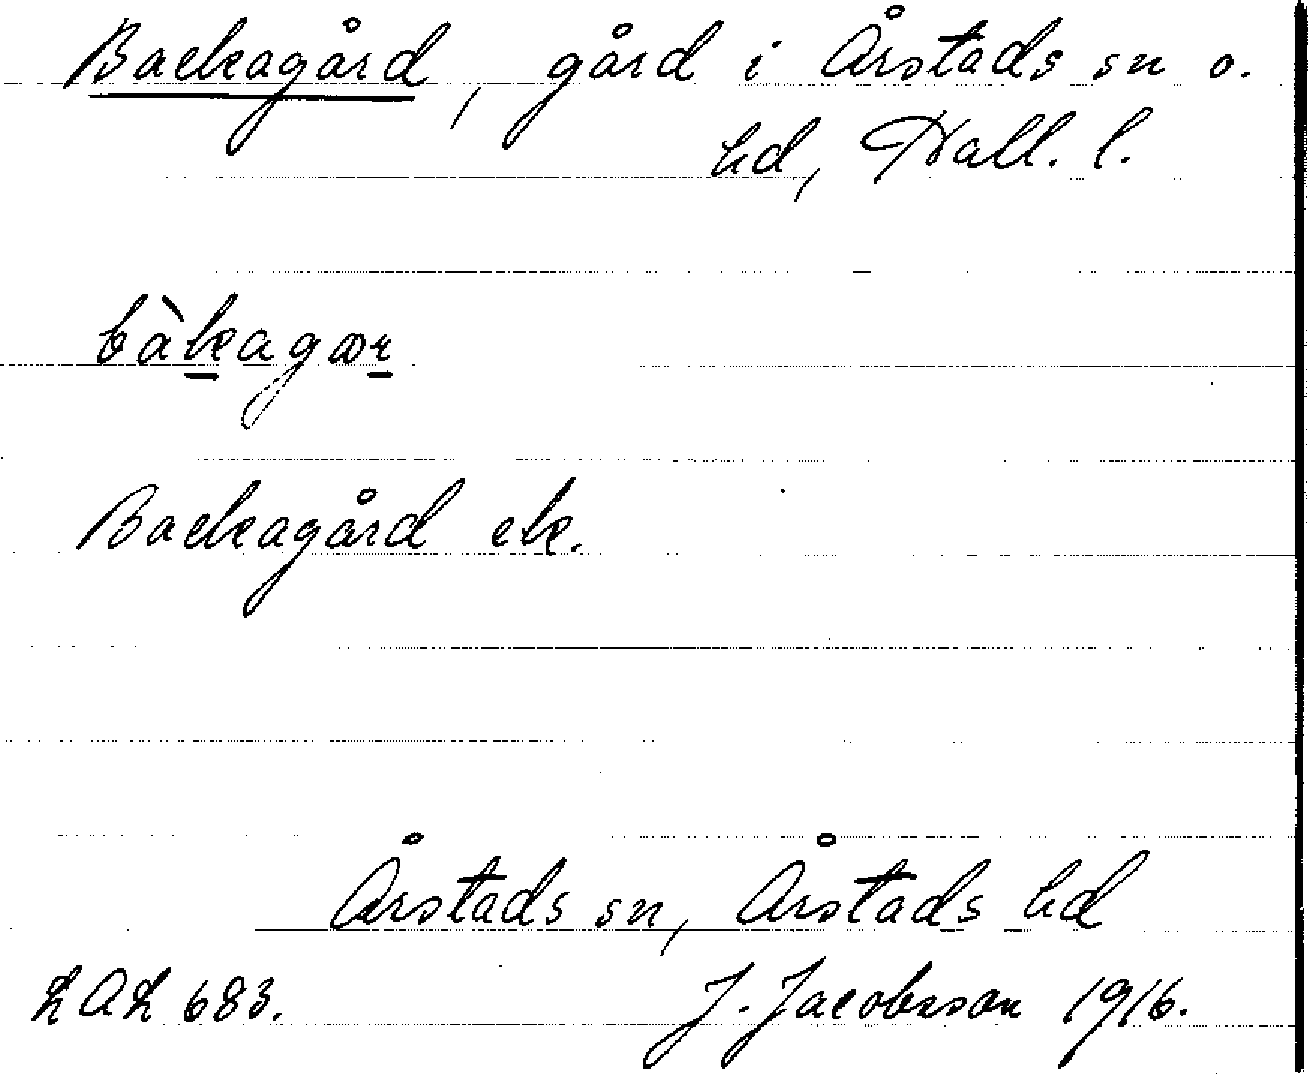 Backagård, gård i Årstads sn o.
hd, Hall. l.
bàkagær
Backagård ek.
Årstads sn, Årstads hd
LAL 683. J. Jacobsson 1916.